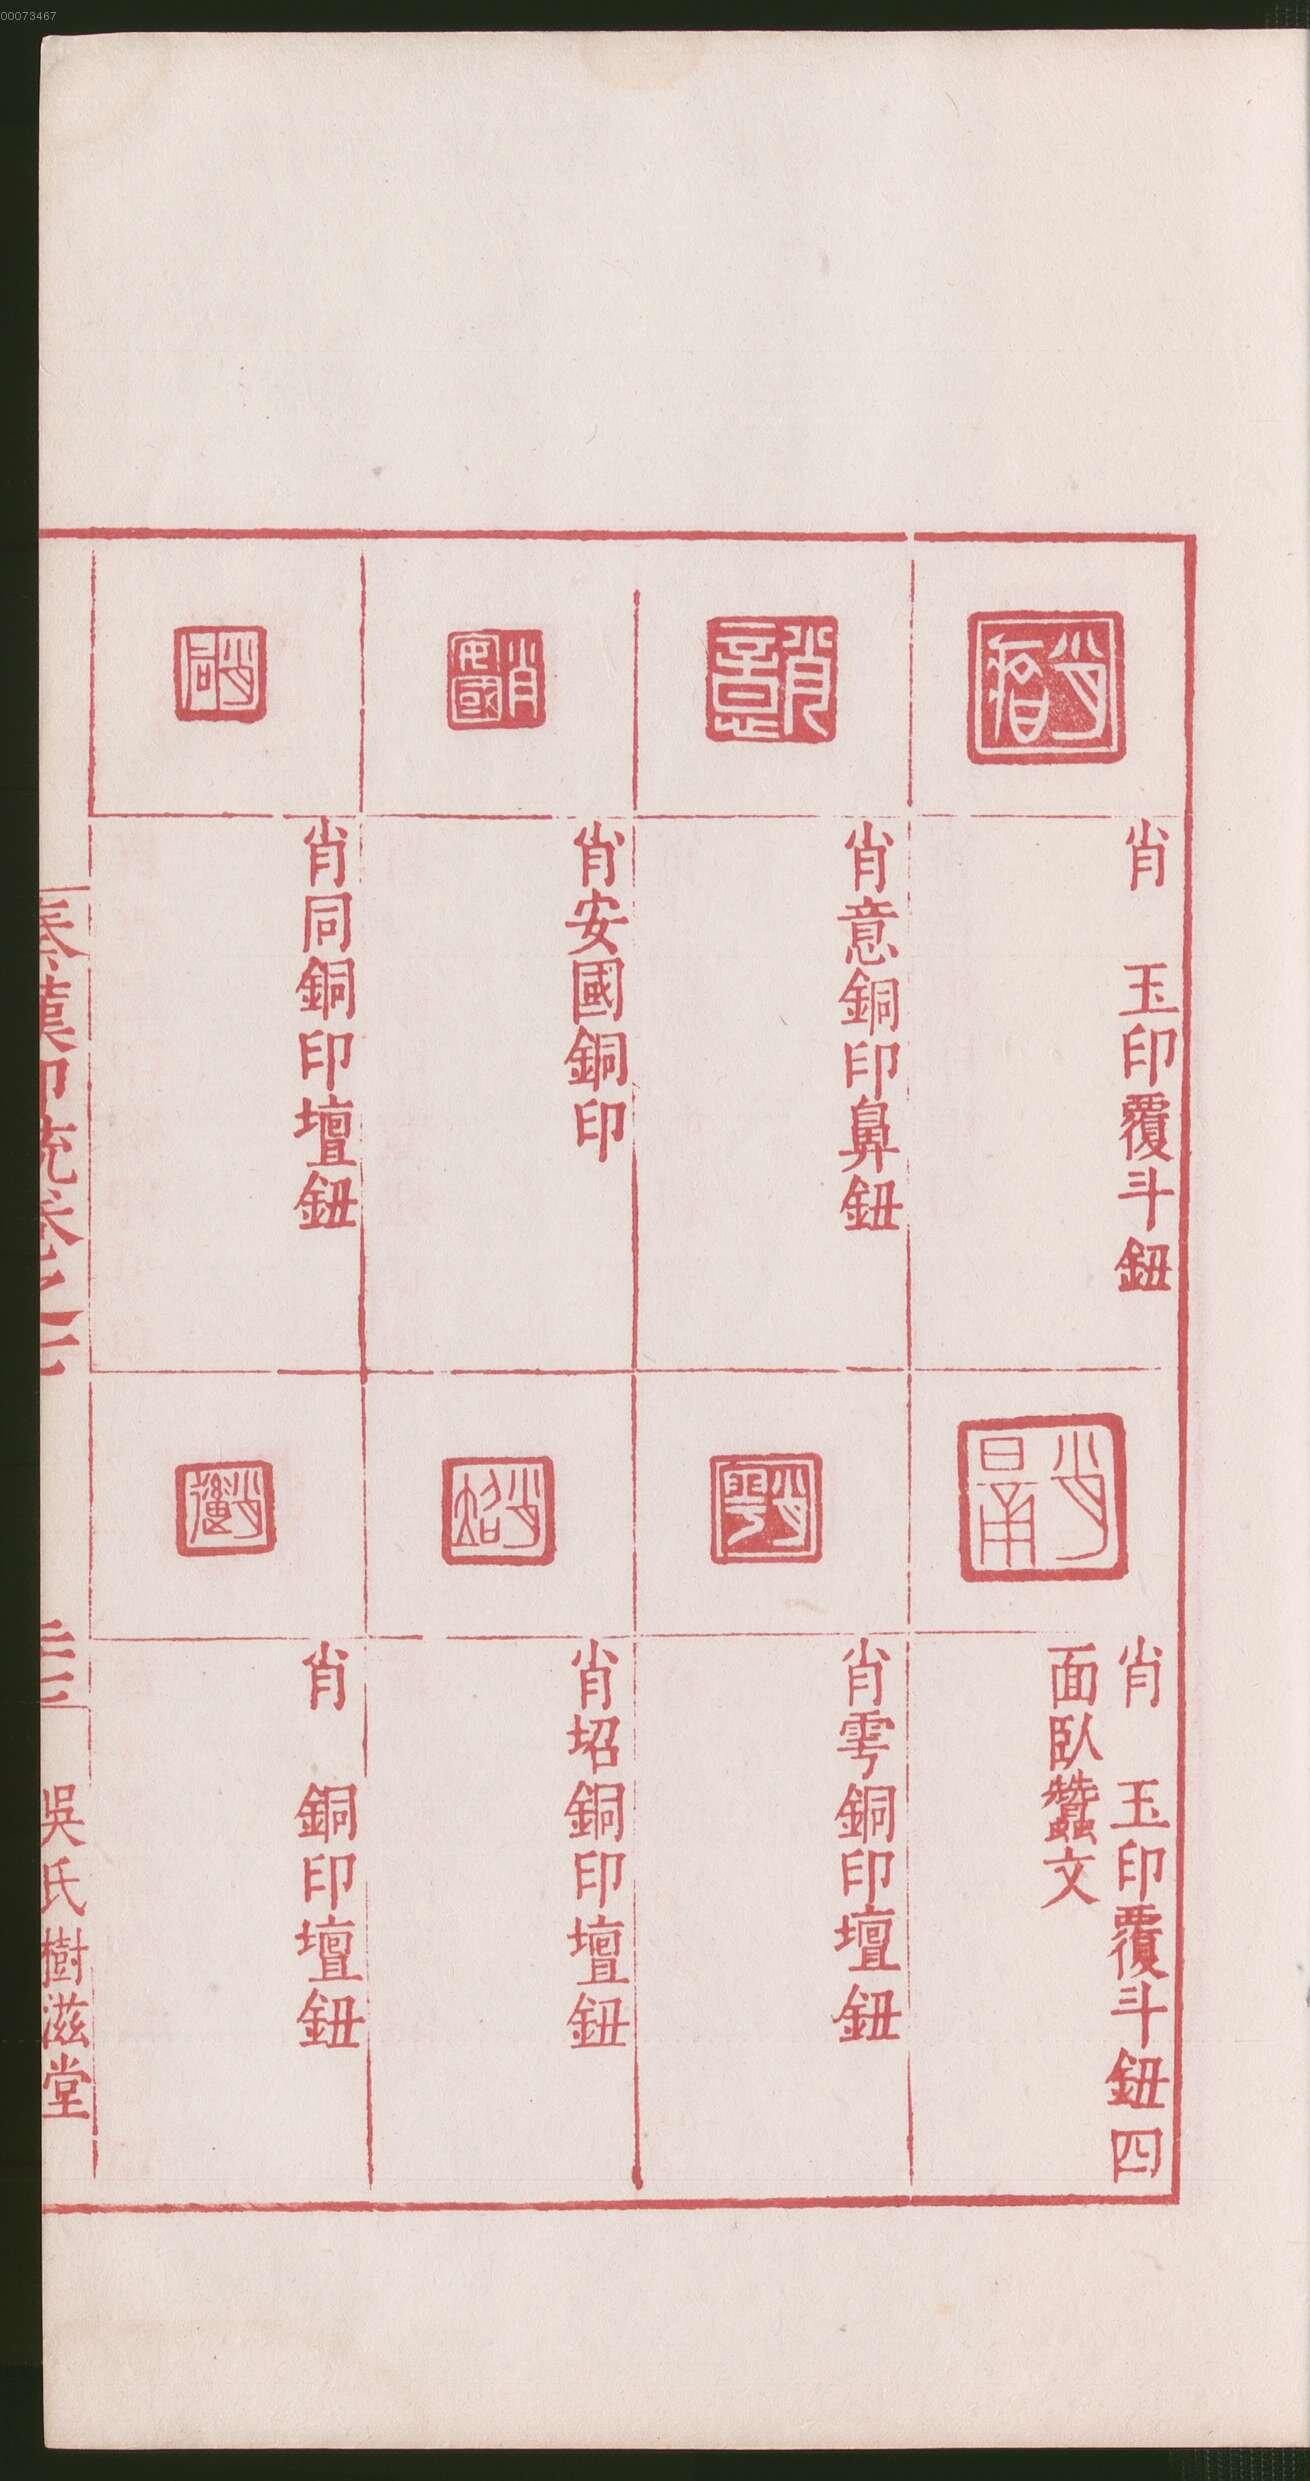 00073467
肖　玉印覆斗鈕
肖意銅印鼻鈕
肖安國銅印
肖同銅印壇鈕
肖　玉印覆斗鈕四
面臥蠶文
肖雩銅印壇鈕
肖㘛銅印壇鈕
肖　銅印壇鈕
秦漢印統卷之七
吳氏樹滋堂